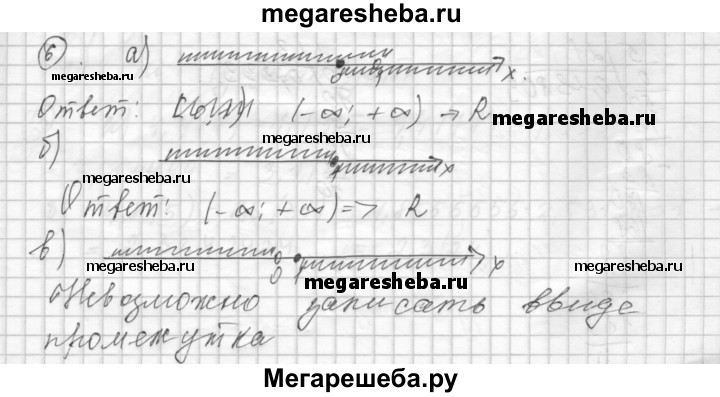 megaresheba.ru
6. а)
megaresheba.ru x.
Ответ: (-∞; +∞) → R
megaresheba.ru
б) megaresheba.ru
megaresheba.ru x
Ответ: (-∞; +∞) => R
в)
megaresheba.ru 0 x
megaresheba.ru
Невозможно записать ввиде
промежутка
Мегарешеба.ру